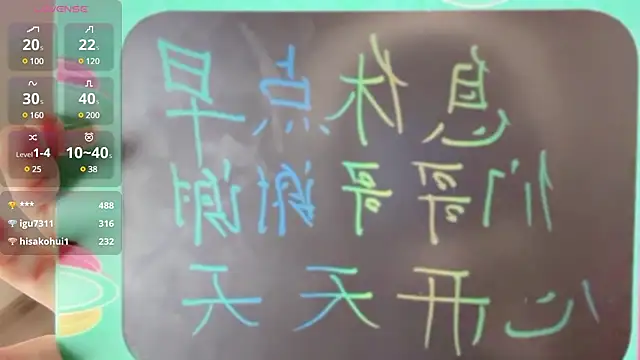 LOVENSE
20s 22s
100 120
30s 40s
160 200
Level1-4 10~40s
25 38
*** 488
igu7311 316
hisakohui1 232
早点休息
谢谢哥哥们
天天开心